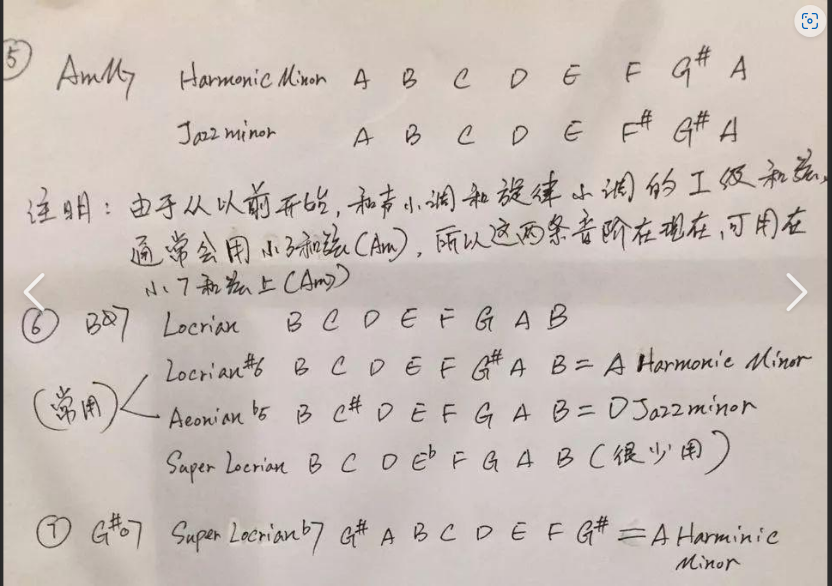 ⑤ AmM7 Harmonic Minor A B C D E F G# A
Jazz minor A B C D E F# G# A
注明：由于从以前开始，和声小调和旋律小调的I级和弦，
通常会用小3和弦(Am)，所以这两条音阶在现在，可用在
小7和弦上(Am7)
⑥ Bø7 Locrian B C D E F G A B
Locrian#6 B C D E F G# A B = A Harmonic Minor
(常用)
Aeonian b5 B C# D E F G A B = D Jazz minor
Super Locrian B C D Eb F G A B (很少用)
⑦ G#o7 Super Locrian b7 G# A B C D E F G# = A Harminic
Minor